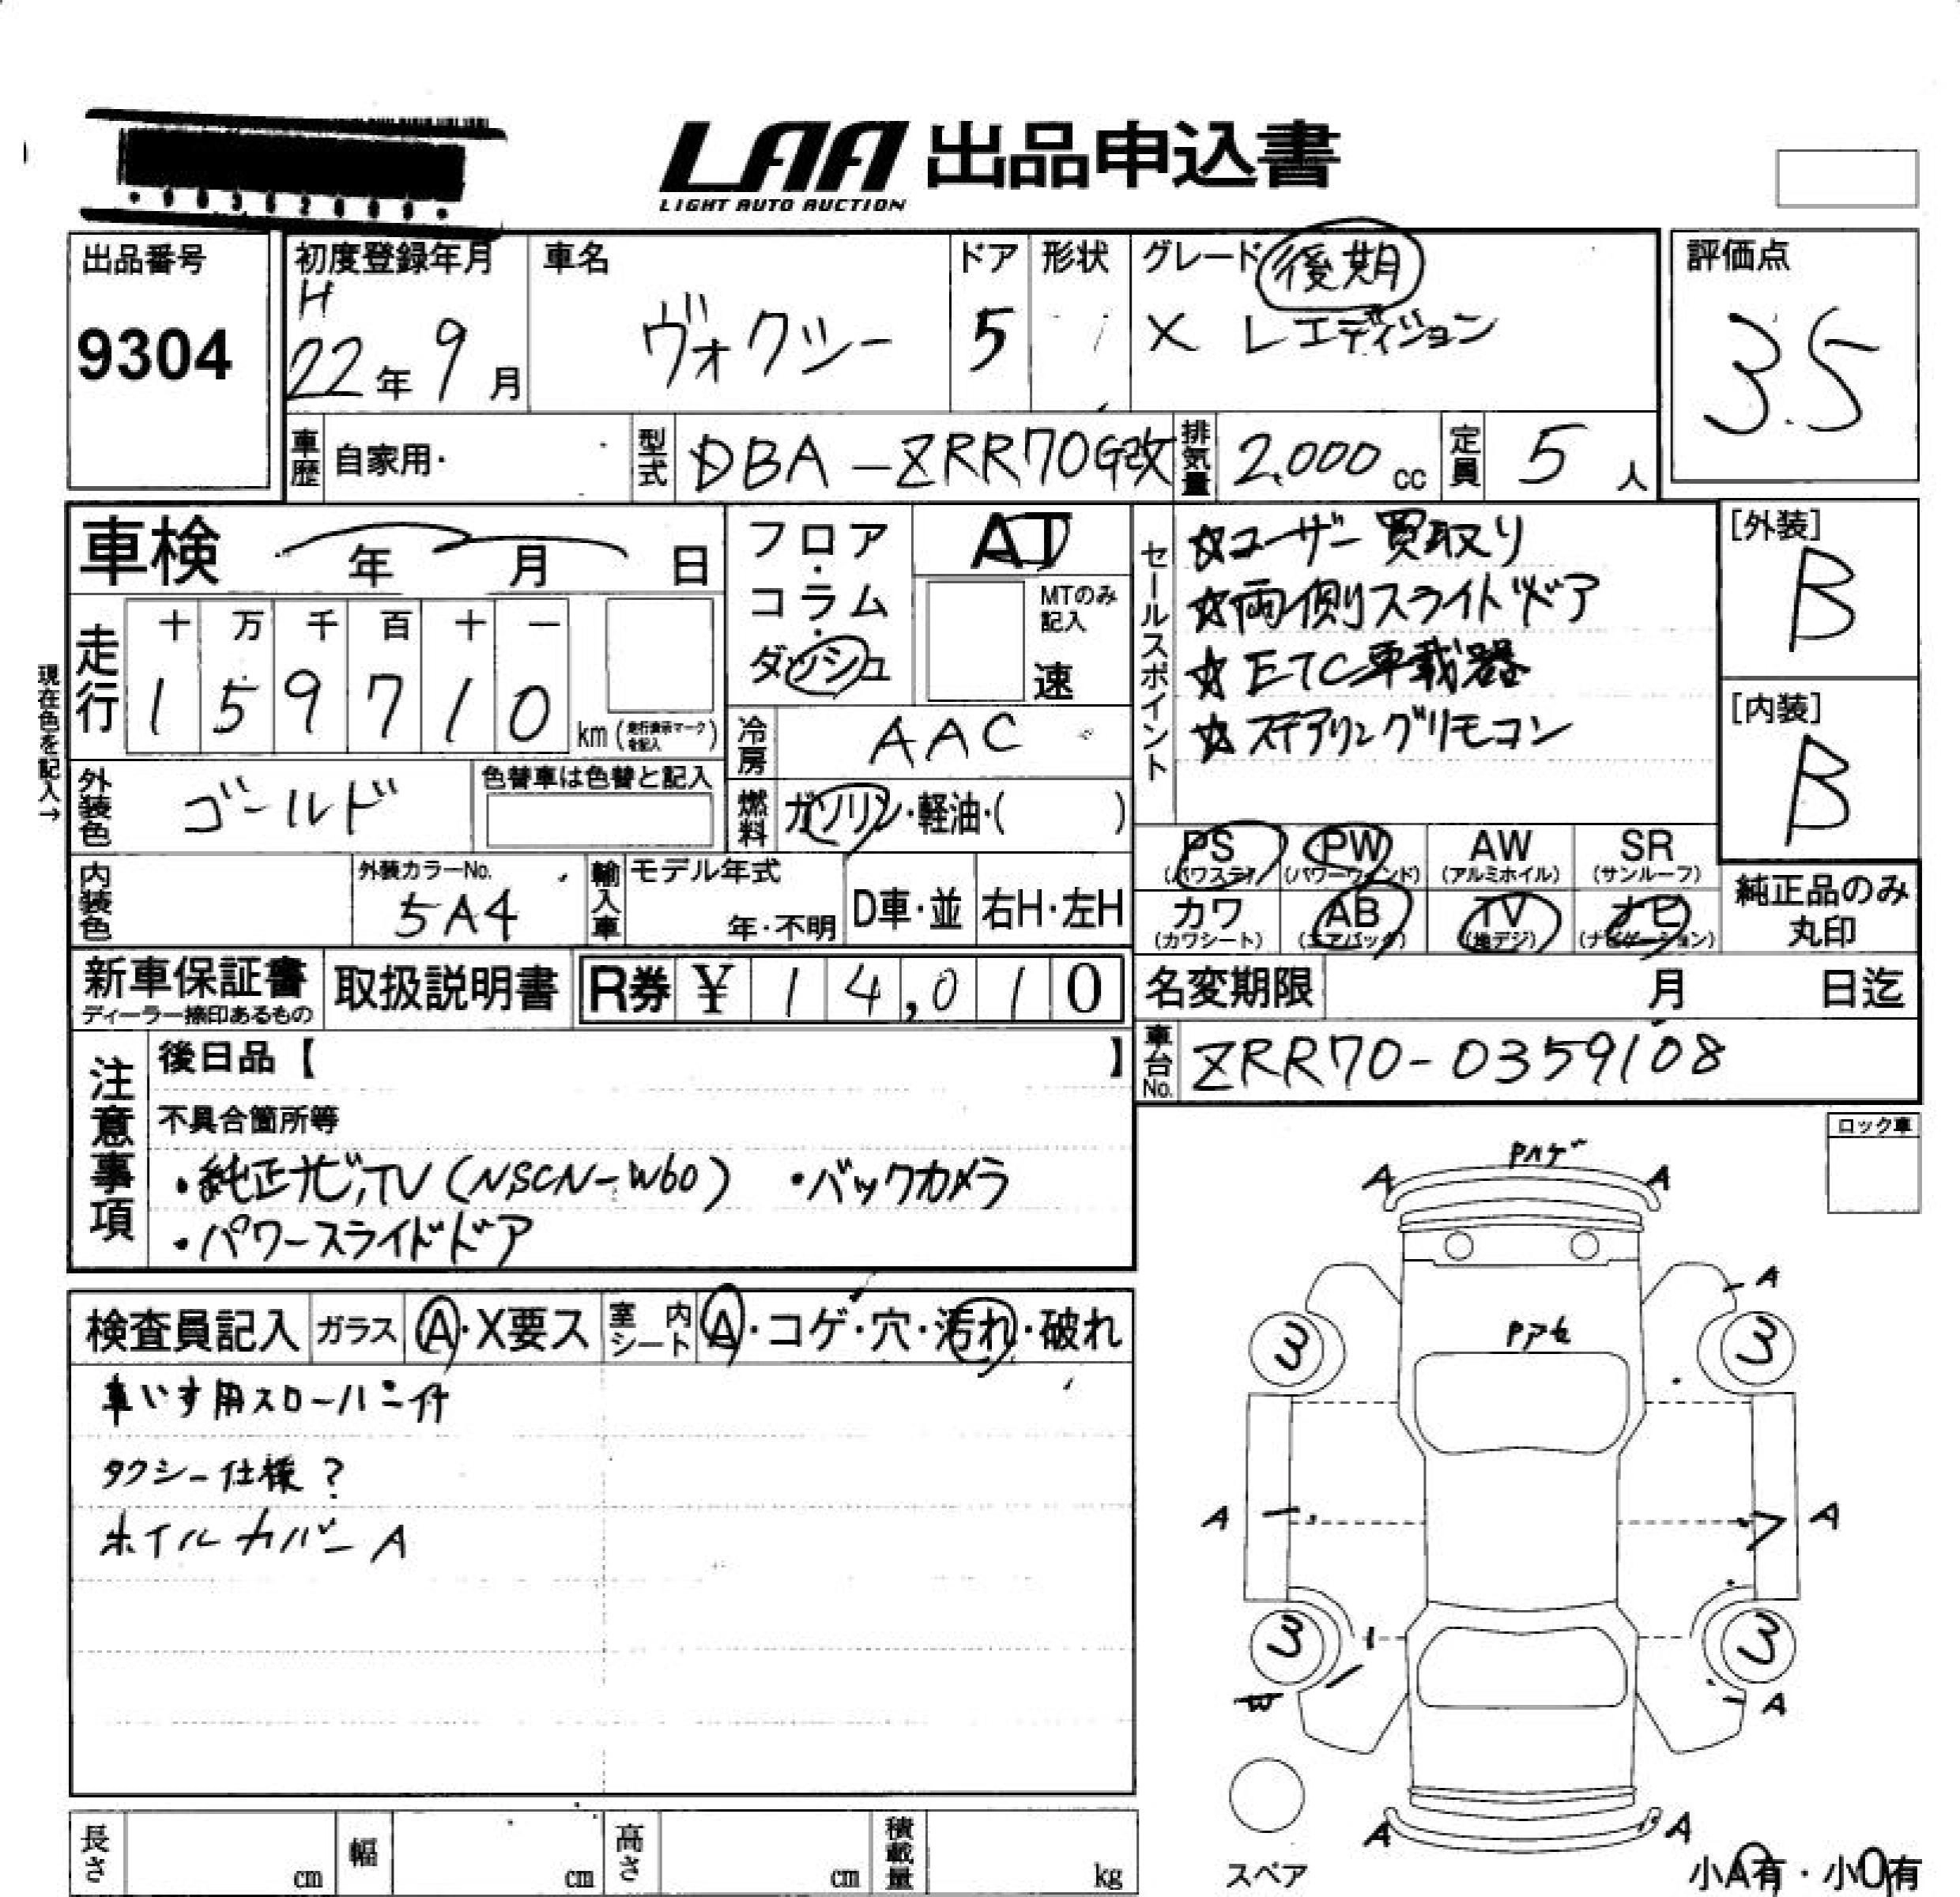 LAA 出品申込書
LIGHT AUTO AUCTION
出品番号
9304
初度登録年月
H
22年 9月
車名
ヴォクシー
ドア
5
形状
グレード 後期
X Lエディション
評価点
3.5
車歴 自家用・
型式 DBA-ZRR70G改
排気量 2,000 cc
定員 5 人
車検 年 月 日
フロア・コラム・ダッシュ
AT
MTのみ記入
速
セールスポイント
☆ユーザー買取り
☆両側スライドドア
☆ETC車載器
☆ステアリングリモコン
[外装]
B
[内装]
B
現在色を記入→
走行
十 万 千 百 十 一
1 5 9 7 1 0 km(走行表示マークを記入)
冷房 AAC
外装色 ゴールド
色替車は色替と記入
燃料 ガソリン・軽油・( )
PS(パワステ) PW(パワーウィンド) AW(アルミホイル) SR(サンルーフ)
カワ(カワシート) AB(エアバック) TV(地デジ) ナビ(ナビゲーション)
純正品のみ丸印
内装色
外装カラーNo.
5A4
輸入車
モデル年式
年・不明
D車・並
右H・左H
新車保証書
ディーラー捺印あるもの
取扱説明書
R券 ¥ 14,010
名変期限 月 日迄
車台No. ZRR70-0359108
注意事項
後日品【 】
不具合箇所等
・純正ナビ,TV(NSCN-W60) ・バックカメラ
・パワースライドドア
ロック車
検査員記入 ガラス A・X要ス 室内シート A・コゲ・穴・汚れ・破れ
車いす用スローパー付
タクシー仕様?
ホイルカバーA
Pハゲ
A A
A
Pアセ
3 3
A A
3 3
W A
A A
スペア
小A有・小O有
長さ cm
幅 cm
高さ cm
積載量 kg